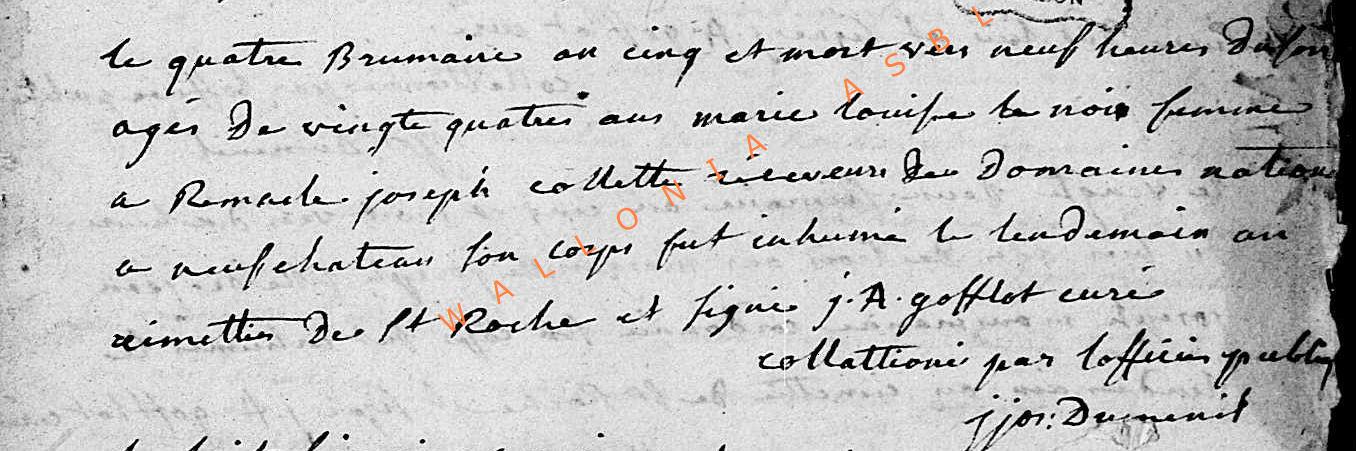 le quatre Brumaire an cinq et mort vers neuf heures du soir
agés de vingte quatres ans marie louise le noir femme
a Remacle joseph collette réceveur des Domaines nation
a neufchateau son corps fut inhumé le lendemain au
cimettier de St Roche et signé j. A. gofflot curé
collattioné par lofficier public
jjos: Dumenil
WALLONIA ASBL